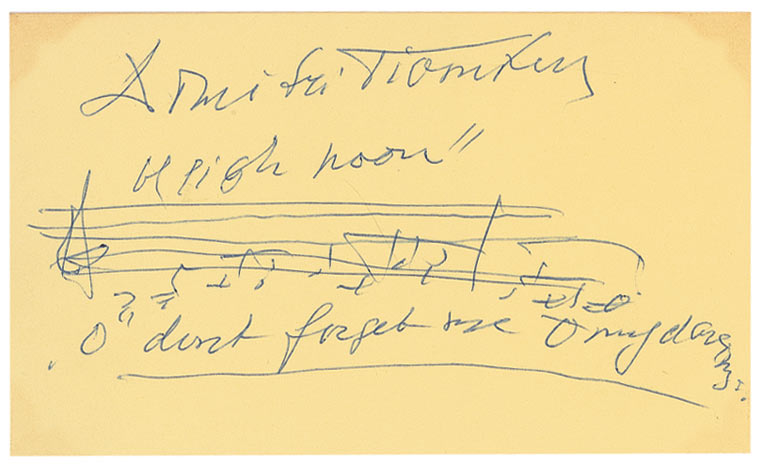 Dmitri Tiomkin
"High noon"
O" dont forget me O my darling.